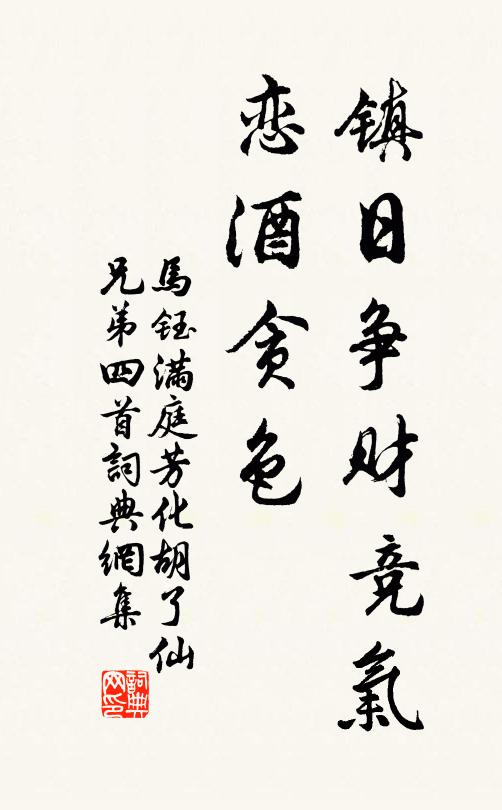 镇日争财竞氣
恋酒贪色
馬钰滿庭芳化胡了仙
兄弟四首詞典網集
詞典网印